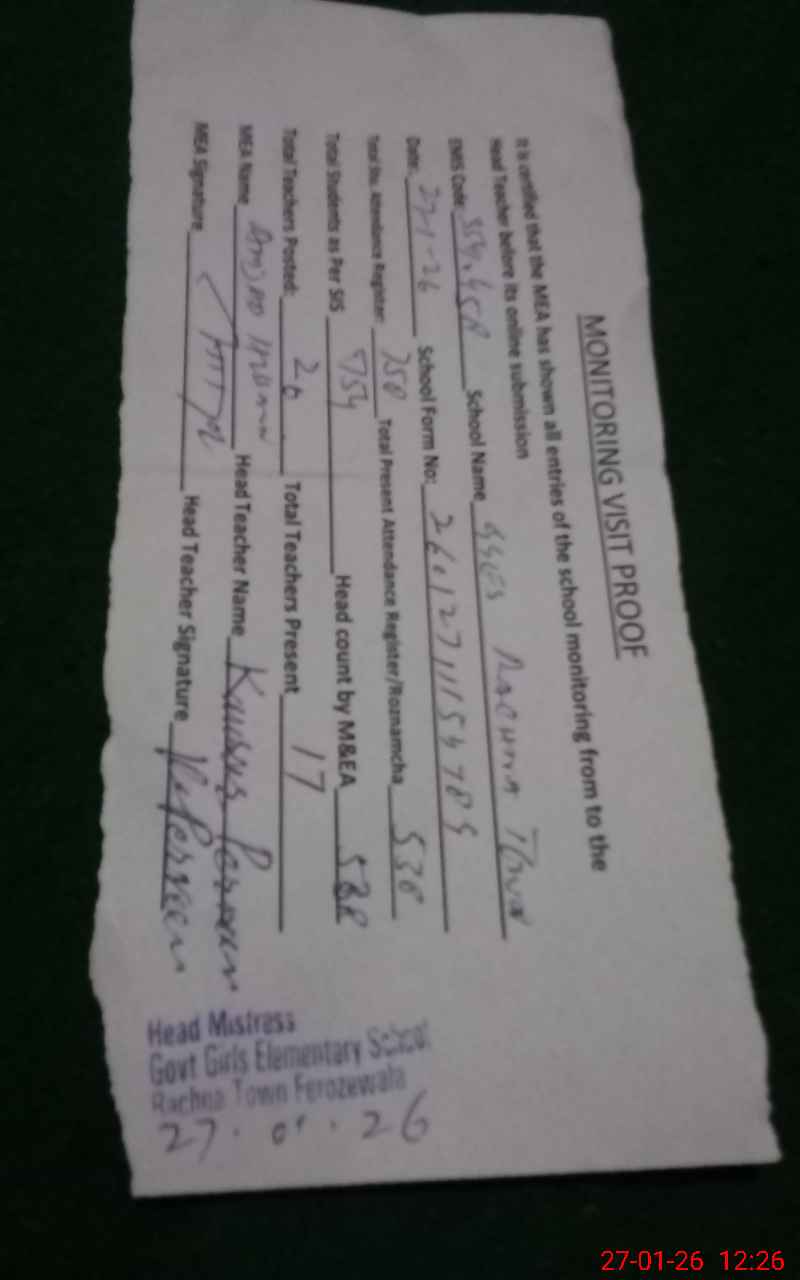 MONITORING VISIT PROOF
It is certified that the MEA has shown all entries of the school monitoring from to the
Head Teacher before its online submission
EMIS Code: School Name GGES Rachna Town
Date: 27-1-26 School Form No:
Total Stu. Attendance Register: 750 Total Present Attendance Register/Roznamcha 538
Total Students as Per SIS 754 Head count by M&EA 538
Total Teachers Posted: 20 Total Teachers Present 17
MEA Name Head Teacher Name Kausar Perveen
MEA Signature Head Teacher Signature
Head Mistress
Govt Girls Elementary School
Rachna Town Ferozewala
27.01.26
27-01-26 12:26